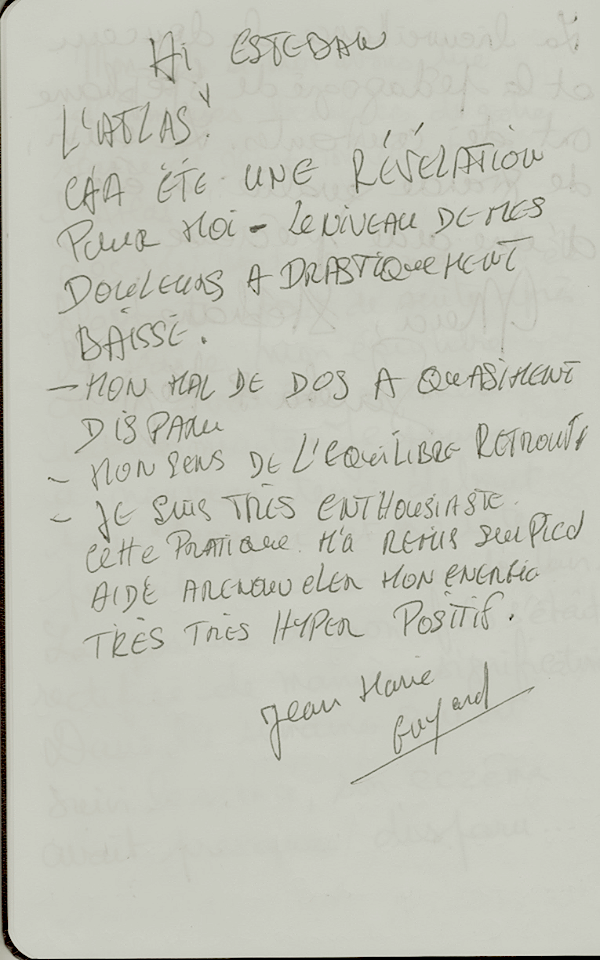 Hi ESTEBAN
L'ATLAS!
ÇA A ÉTÉ UNE RÉVÉLATION
POUR MOI - LE NIVEAU DE MES
DOULEURS A DRASTIQUEMENT
BAISSÉ.
- MON MAL DE DOS A QUASIMENT
DISPARU
- MON SENS DE L'EQUILIBRE RETROUVÉ
- JE SUIS TRÈS ENTHOUSIASTE.
CETTE PRATIQUE M'A REMIS SUR PIED
AIDÉ A RENOUVELER MON ENERGIE
TRÈS TRÈS HYPER POSITIF.
Jean Marie
Guyard